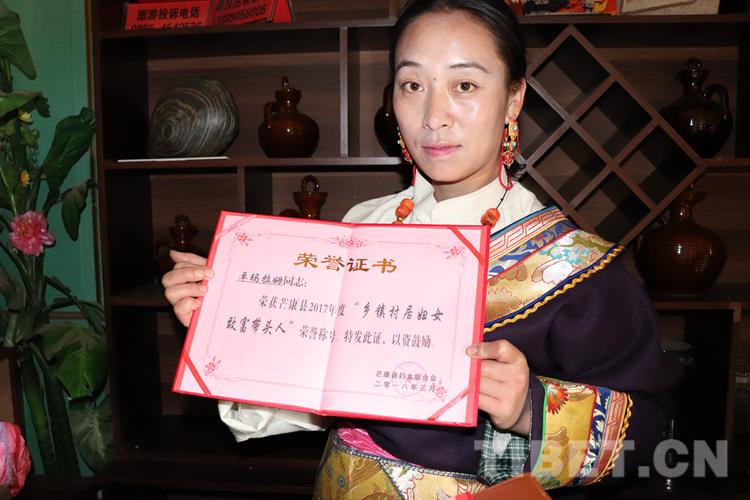 旅游投诉电话
13889058005
0895-4542526
荣誉证书
卓玛拉姆同志:
荣获芒康县2017年度“乡镇村居妇女
致富带头人”荣誉称号。特发此证,以资鼓励。
芒康县妇女联合会
二〇一八年三月
TIBET.CN